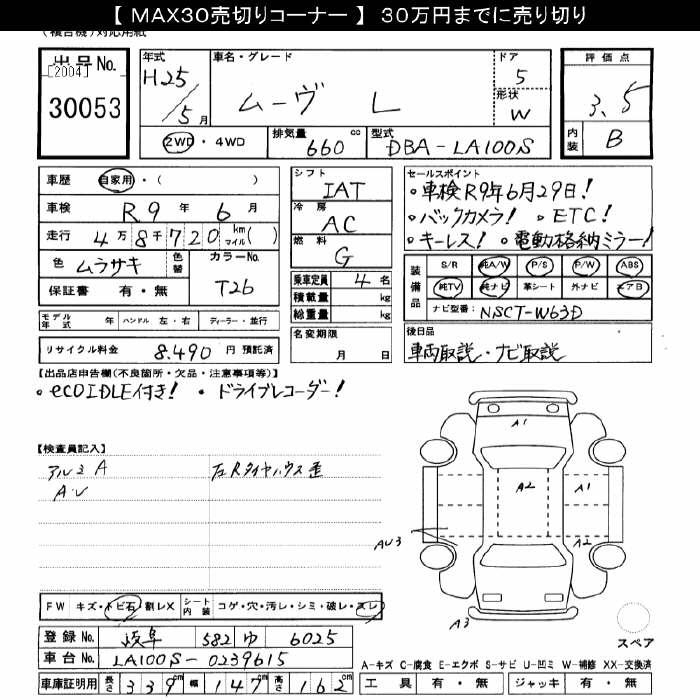 【 MAX30売切りコーナー 】 30万円までに売り切り
(複合機)対応用紙
出品No.
[2004]
30053
年式
H25/5月
車名・グレード
ムーヴ L
ドア
5
形状
W
評価点
3.5
内装
B
2WD・4WD
排気量
660 cc
型式
DBA-LA100S
車歴 自家用・( )
車検 R9年6月
走行 4万8千720 km マイル( )
色 ムラサキ
色替
カラーNo.
T26
保証書 有・無
モデル年式 年 ハンドル 左・右 ディーラー・並行
リサイクル料金 8.490 円 預託済
シフト
IAT
冷房
AC
燃料
G
乗車定員 4名
積載量 kg
総重量 kg
名変期限
月 日
セールスポイント
・車検R9年6月29日!
・バックカメラ! ・ETC!
・キーレス! ・電動格納ミラー!
装備品
S/R 純A/W P/S P/W ABS
純TV 純ナビ 革シート 外ナビ エアB
ナビ型番: NSCT-W63D
後日品
車両取説・ナビ取説
【出品店申告欄(不良箇所・欠品・注意事項等)】
・ecoIDLE付き! ・ドライブレコーダー!
【検査員記入】
アルミA
A.U
左Rタイヤハウス歪
A1
A2
A1
A2
AU3
A3
スペア
FW キズ・トビ石・割レX
シート内装 コゲ・穴・汚レ・シミ・破レ・スレ
登録No. 岐阜 582 ゆ 6025
車台No. LA100S-0239615
車庫証明用 長さ 339cm 幅 147cm 高さ 162cm
A-キズ C-腐食 E-エクボ S-サビ U-凹ミ W-補修 XX-交換済
工具 有・無 ジャッキ 有・無